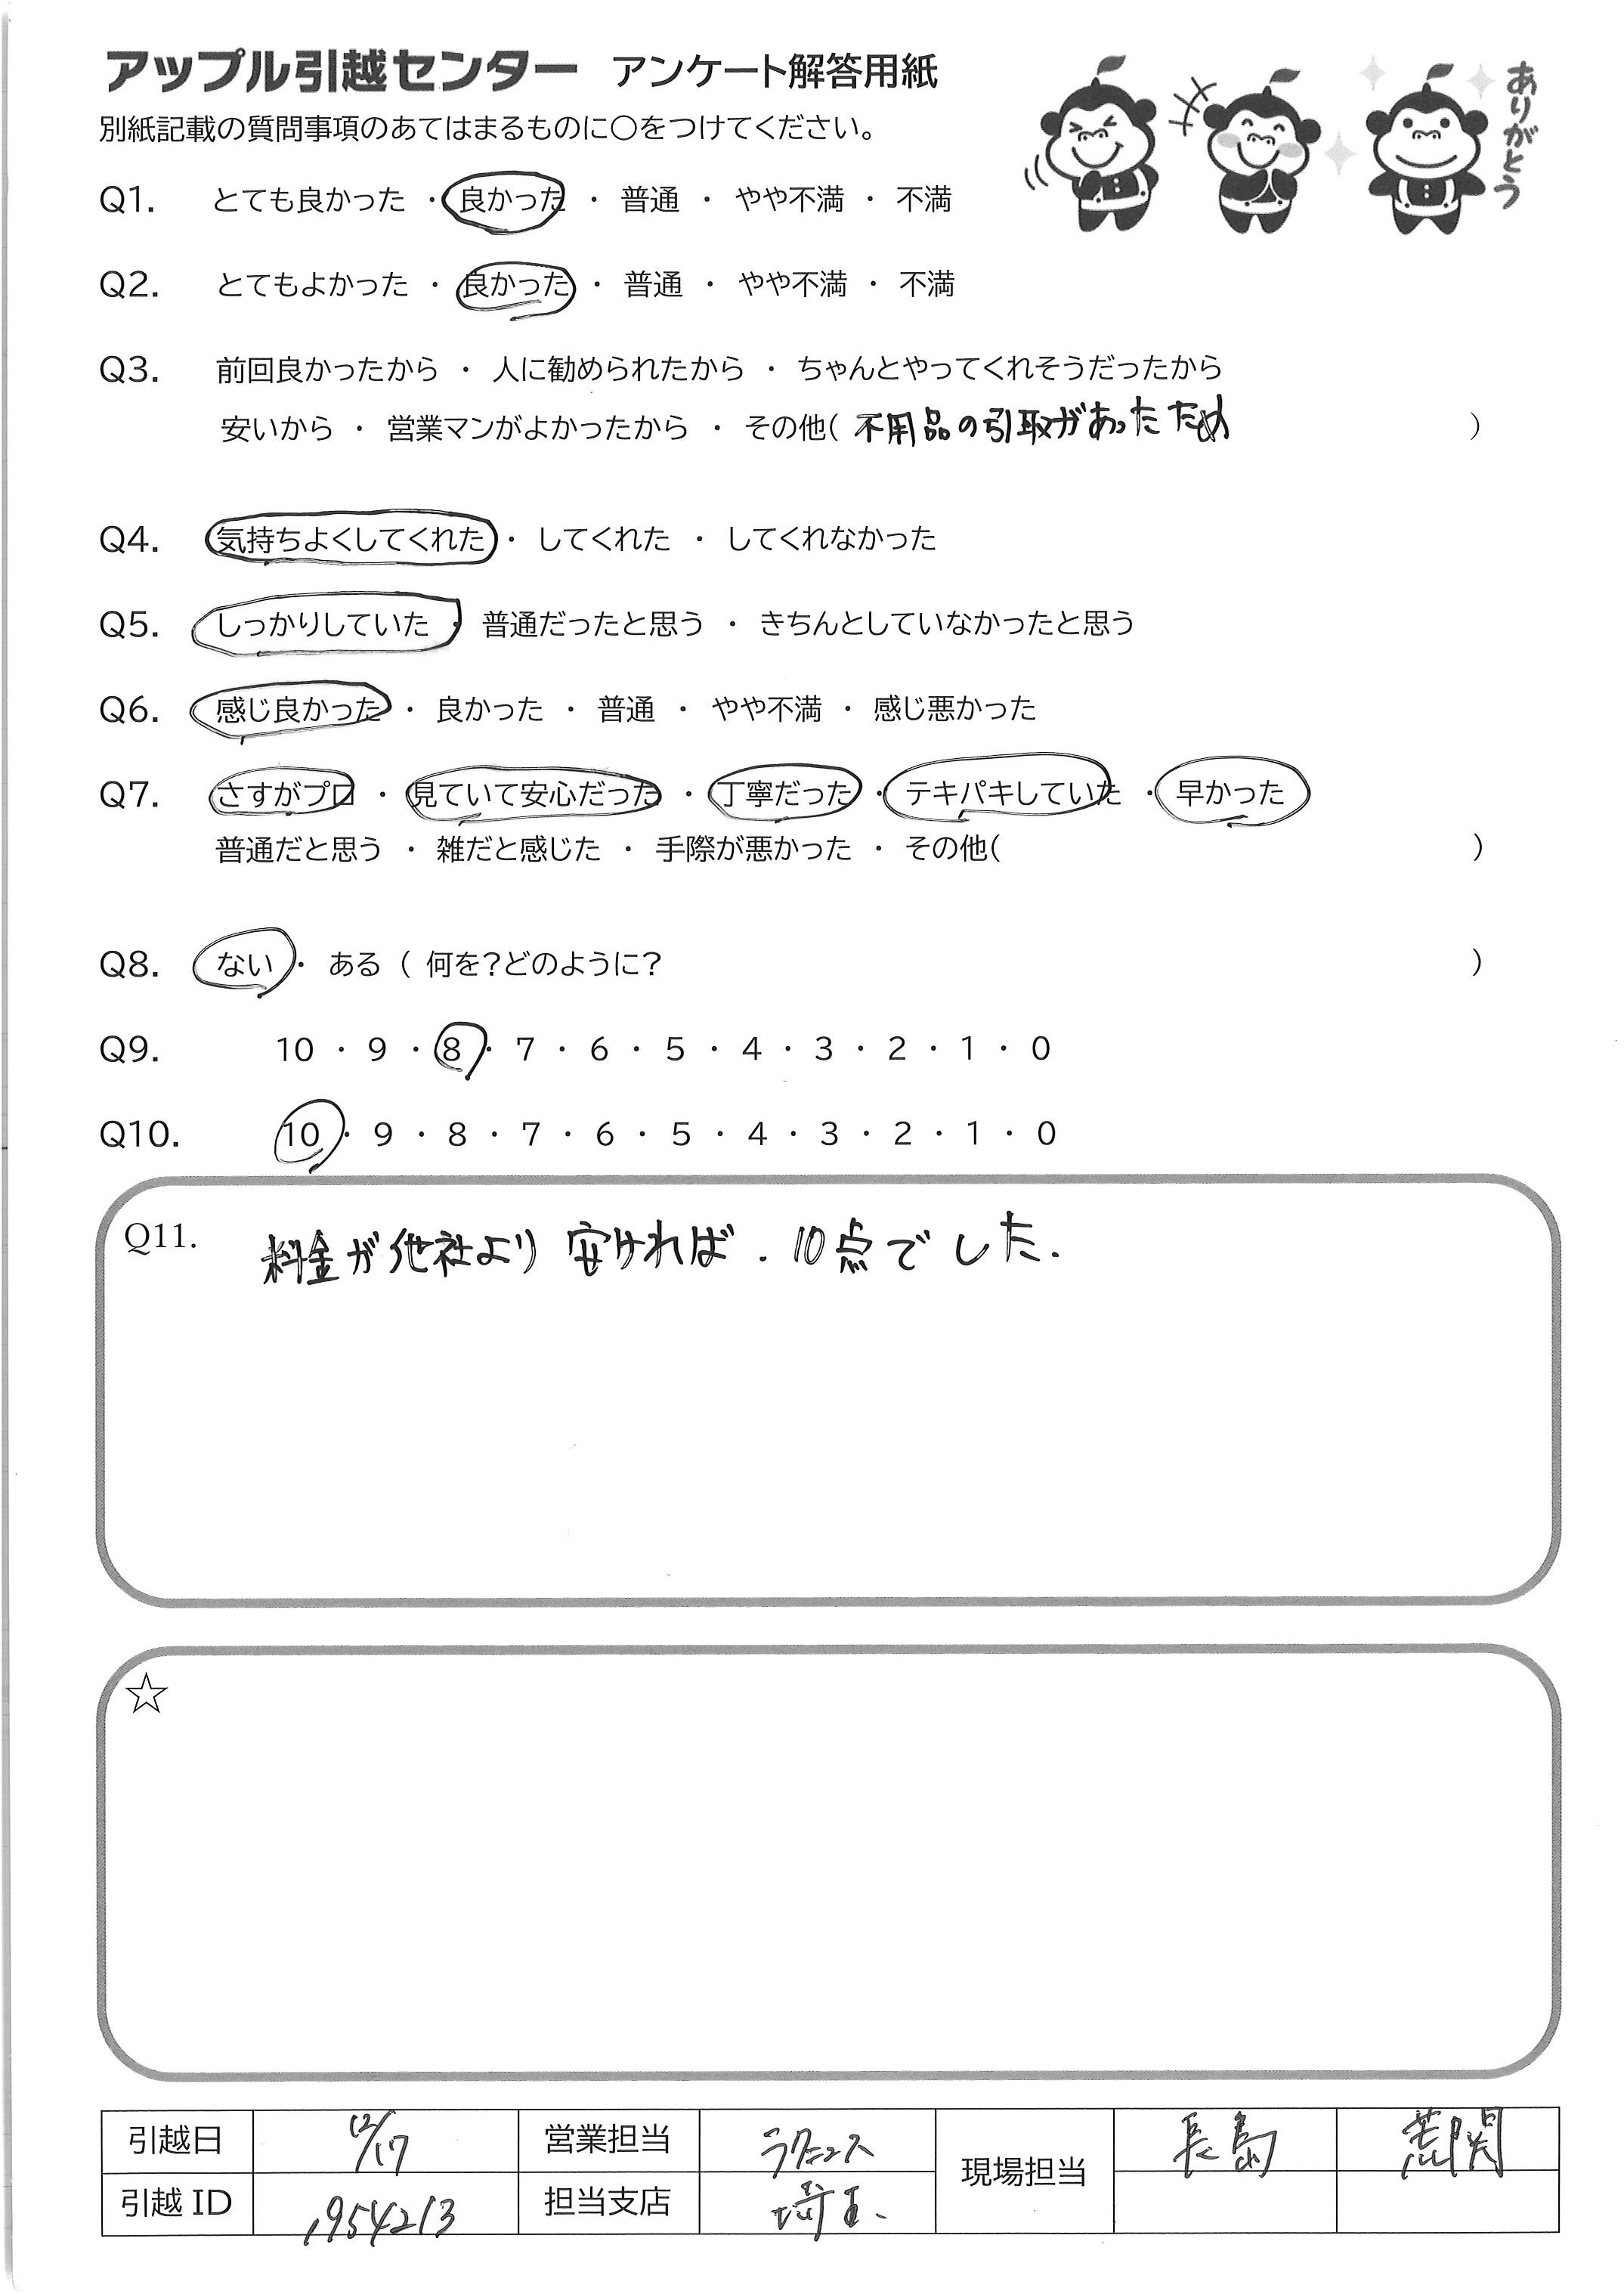 アップル引越センター アンケート解答用紙
ありがとう
別紙記載の質問事項のあてはまるものに○をつけてください。
Q1. とても良かった ・ 良かった ・ 普通 ・ やや不満 ・ 不満
Q2. とてもよかった ・ 良かった ・ 普通 ・ やや不満 ・ 不満
Q3. 前回良かったから ・ 人に勧められたから ・ ちゃんとやってくれそうだったから
安いから ・ 営業マンがよかったから ・ その他( 不用品の引取があったため )
Q4. 気持ちよくしてくれた ・ してくれた ・ してくれなかった
Q5. しっかりしていた ・ 普通だったと思う ・ きちんとしていなかったと思う
Q6. 感じ良かった ・ 良かった ・ 普通 ・ やや不満 ・ 感じ悪かった
Q7. さすがプロ ・ 見ていて安心だった ・ 丁寧だった ・ テキパキしていた ・ 早かった
普通だと思う ・ 雑だと感じた ・ 手際が悪かった ・ その他( )
Q8. ない ・ ある ( 何を?どのように? )
Q9. 10 ・ 9 ・ 8 ・ 7 ・ 6 ・ 5 ・ 4 ・ 3 ・ 2 ・ 1 ・ 0
Q10. 10 ・ 9 ・ 8 ・ 7 ・ 6 ・ 5 ・ 4 ・ 3 ・ 2 ・ 1 ・ 0
Q11. 料金が他社より安ければ. 10点でした.
☆
引越日 12/17 営業担当 現場担当 長島 荒関
引越 ID 1954213 担当支店 埼玉